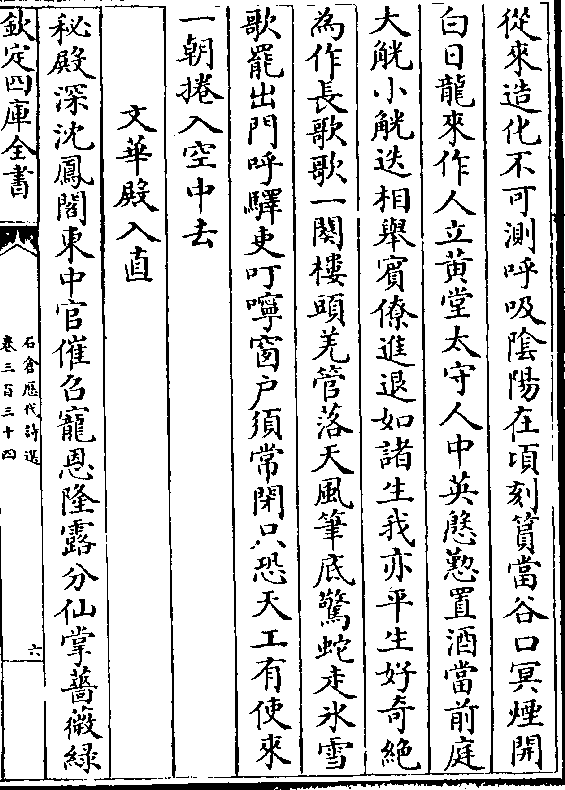 從來造化不可測呼吸陰陽在頃刻篔當谷口冥煙開
白日龍來作人立黄堂太守人中英慇懃置酒當前庭
大觥小觥迭相舉賓僚進退如諸生我亦平生好奇絶
為作長歌歌一闋樓頭羌管落天風筆底驚蛇走氷雪
歌罷出門呼驛吏叮嚀窗户須常閉只恐天工有使來
一朝捲入空中去
文華殿入直
秘殿深沈鳳閣東中官催召寵恩隆露分仙掌薔薇緑
欽定四庫全書
石倉歷代詩選
卷三百三十四
六